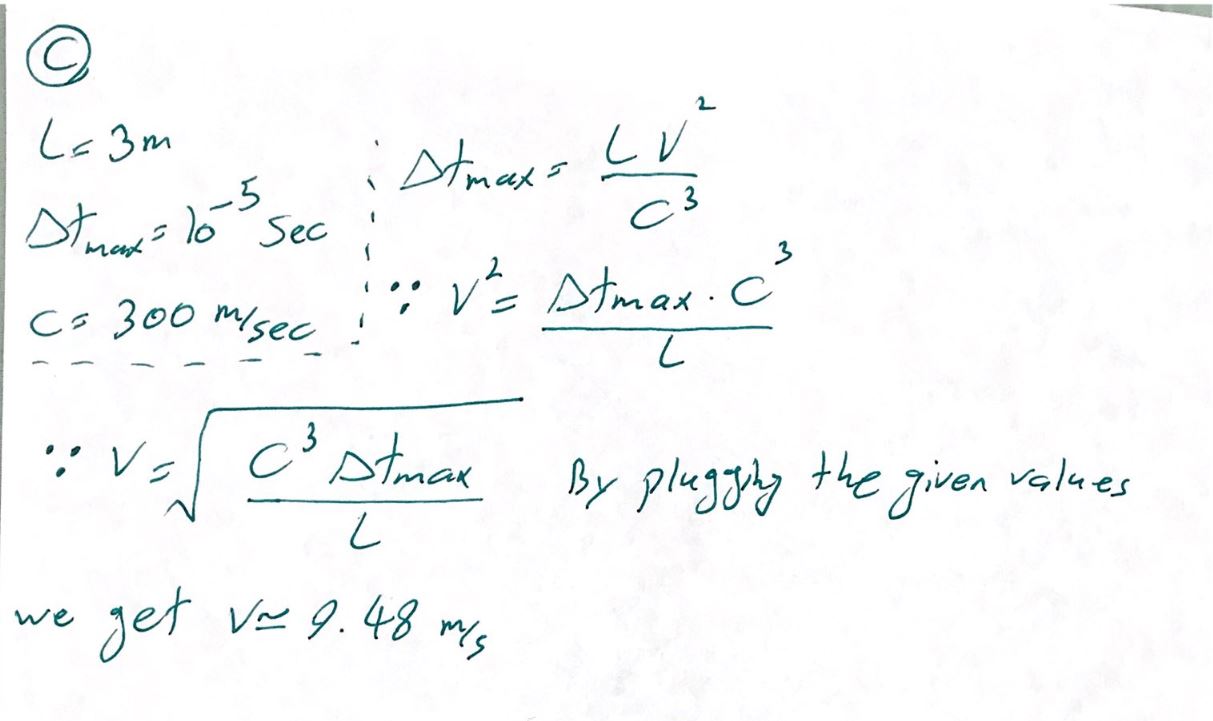 C
L = 3m
Δtmax = 10^-5 sec
C = 300 m/sec
Δtmax = LV^2 / C^3
∵ V^2 = Δtmax · C^3 / L
∵ V = √(C^3 Δtmax / L) By plugging the given values
we get V ≃ 9.48 m/s